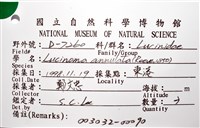 國立自然科學博物館
NATIONAL MUSEUM OF NATURAL SCIENCE
野外號: D-7260 科/群名: Lucinidae
Field# Family/Group
屬種名: Lucinoma annulata (Reeve, 1850)
Species
採集日: 1998.11.19 採集點: 東港
Coll.Date Locality
採集者: 海拔: m
Collector Alt.
鑑定者: S.C.Lee 數量: 3
Det.by Quantity
備註(Remarks):
003032-00070